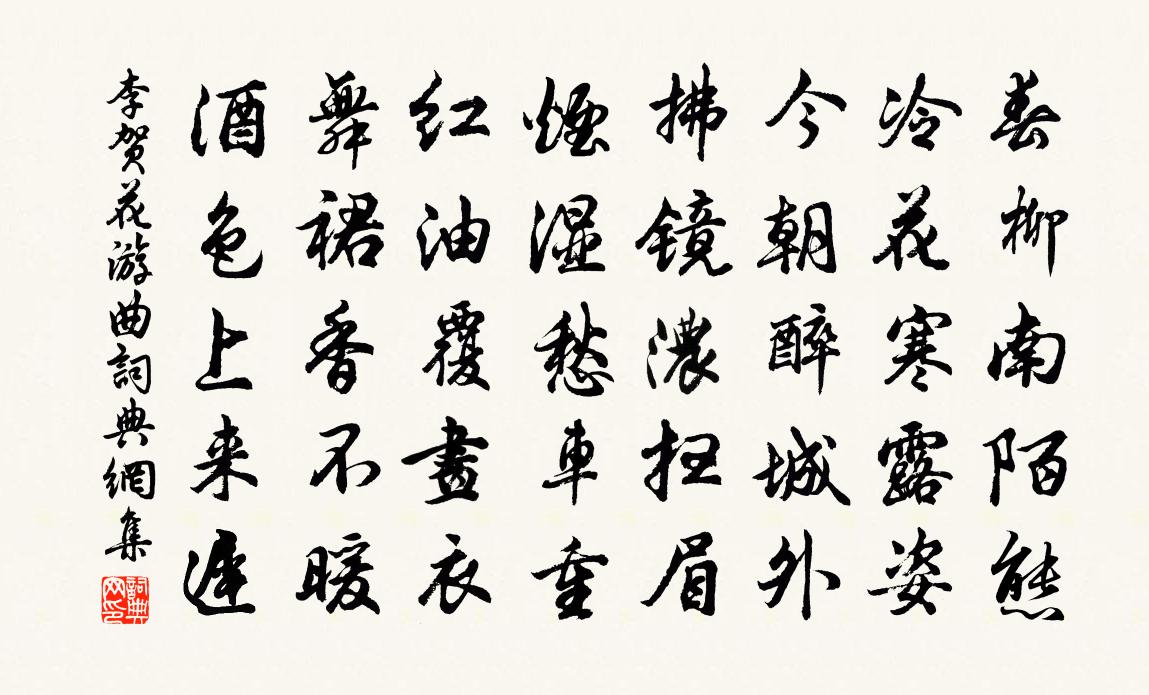 春柳南陌態
冷花寒露姿
今朝醉城外
拂鏡濃扫眉
煙湿愁車重
红油覆畫衣
舞裙香不暖
酒色上来遲
李贺花游曲詞典網集
詞典网印